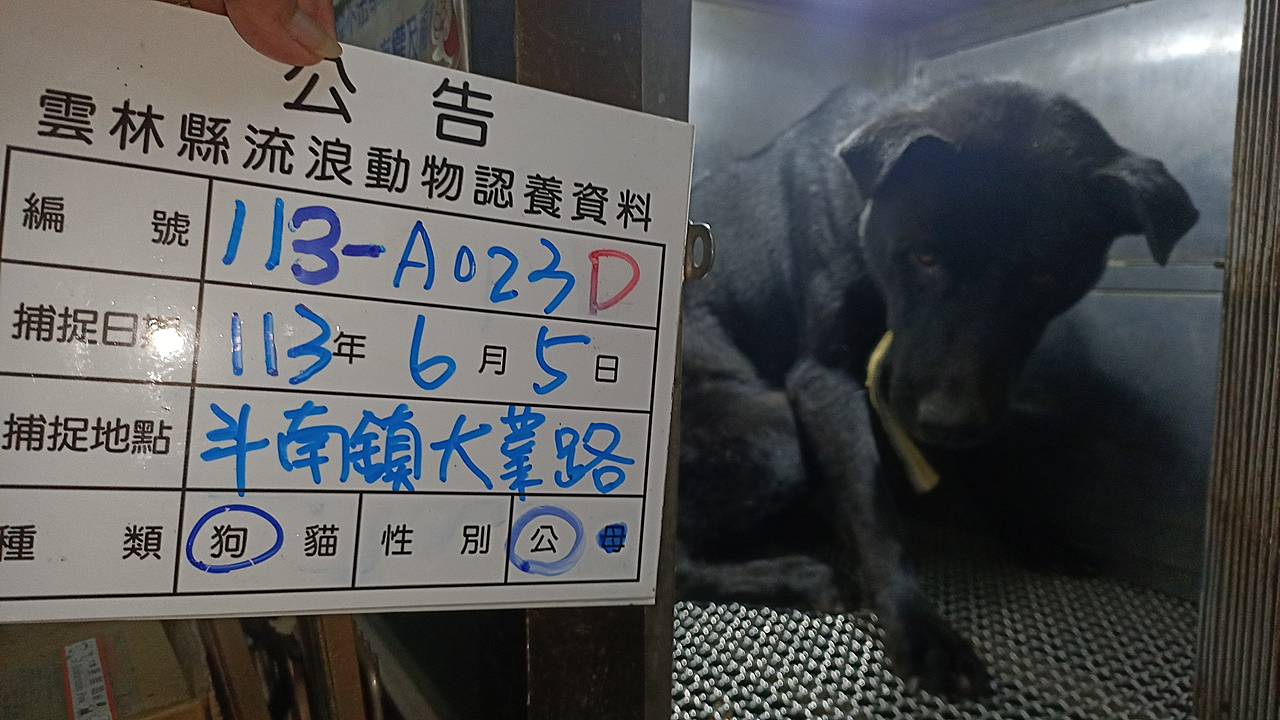 公告
雲林縣流浪動物認養資料
編號 113-A023D
捕捉日期 113年6月5日
捕捉地點 斗南鎮大業路
種類 狗 貓 性別 公 母